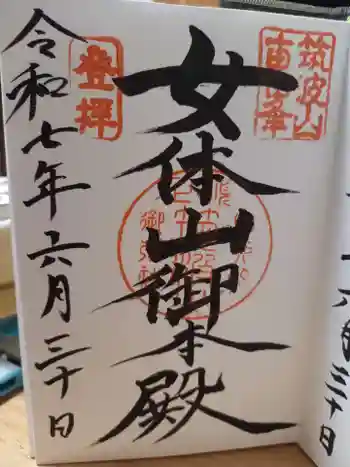 筑波山
女体山御本殿
登拝
令和七年六月三十日
六月三十日